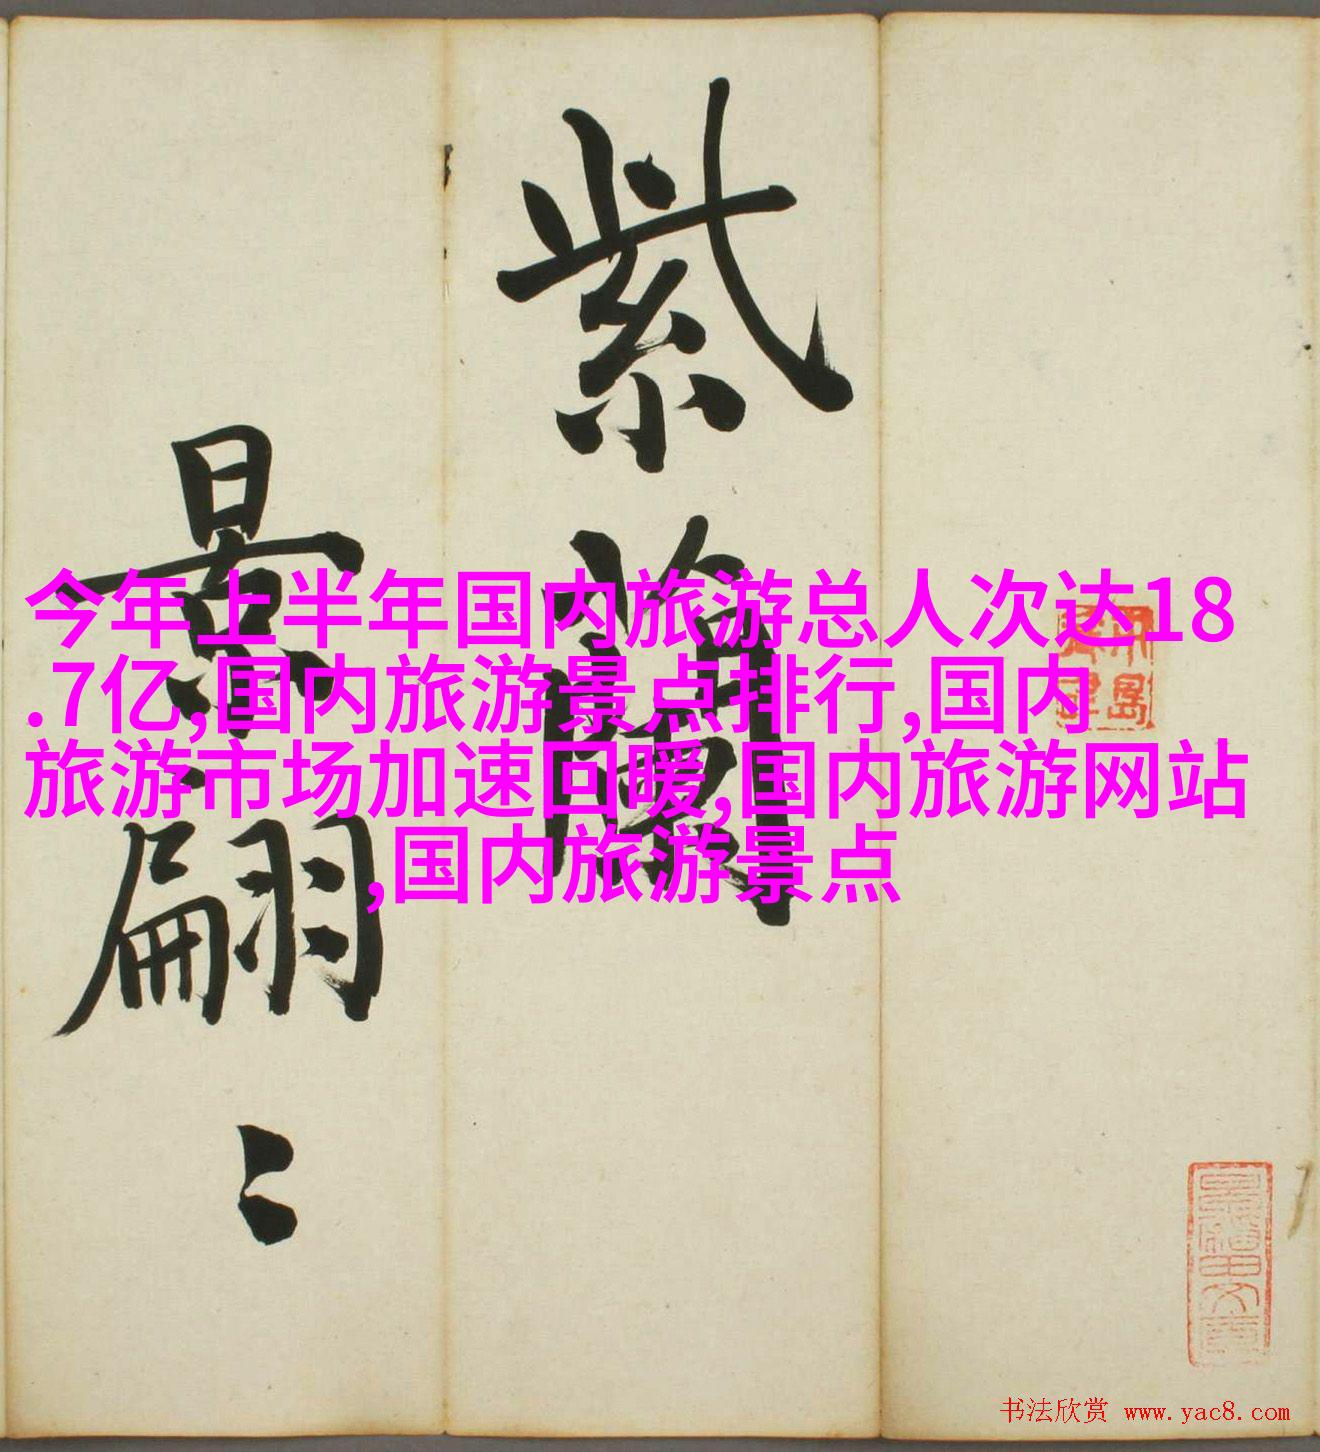 紫蘭
景翩々
今年上半年国内旅游总人次达18
.7亿,国内旅游景点排行,国内
旅游市场加速回暖,国内旅游网站
,国内旅游景点
书法欣赏 www.yac8.com